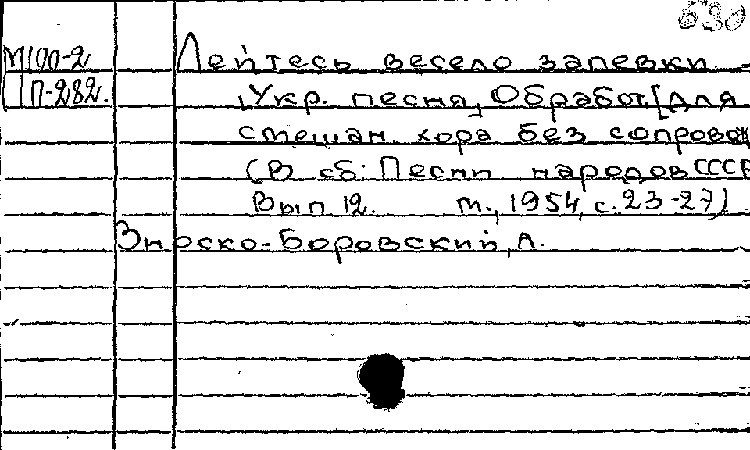 630
М100-2 Лейтесь весело запевки -
П-282. Укр. песня, Обработ. [для
смешан. хора без сопровож
(В сб: Песни народов СССР
Вып 12. М., 1954, с. 23-27)
Зноско-Боровский, А.